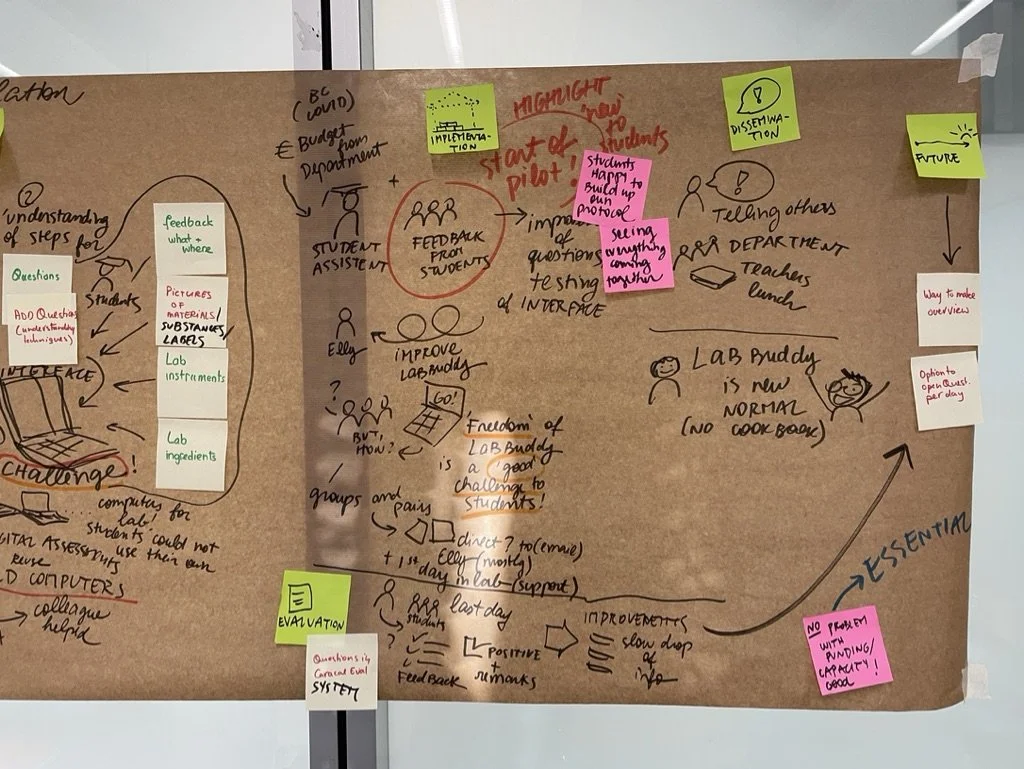 lation
?
'understanding
of steps for
Questions
ADD Question
(understanding
techniques)
students
feedback
what +
where
PICTURES
OF
MATERIALS/
SUBSTANCES/
LABELS
Lab
instruments
Lab
ingredients
INTERFACE
CHALLENGE!
computers for
lab!
students could not
use their own
GITAL ASSESSMENTS
REUSE
D COMPUTERS
→ colleague
helped
(BC
COVID)
€ Budget from
DEPARTMENT
STUDENT
ASSISTENT
+
IMPLEMENTA-
TION
HIGHLIGHT
'new'
to
students
start of
pilot!
FEEDBACK
FROM
STUDENTS
of
questions
testing
of INTERFACE
students
Happy
Build up
own
protocol
seeing
everything
coming
together
Elly
IMPROVE
LABBuddy
?
BUT,
HOW?
GO!
'Freedom' of
LABBuddy
is a 'good'
challenge to
students!
/
groups and
pairs
direct? to (email)
Elly (mostly)
+ 1st
day in lab (support)
DISSEMINA-
TION
!
!
Telling others
DEPARTMENT
Teachers
lunch
LAB Buddy
is new
NORMAL
(NO COOKBOOK)
FUTURE
Way to make
overview
Option to
open Quest.
per day
EVALUATION
Questions in
Caracal Eval
SYSTEM
students
last day
?
Feedback
POSITIVE
+
remarks
IMPROVEMENTS
slow drop
of
info
ESSENTIAL
NO PROBLEM
WITH
FUNDING/
CAPACITY!
GOOD